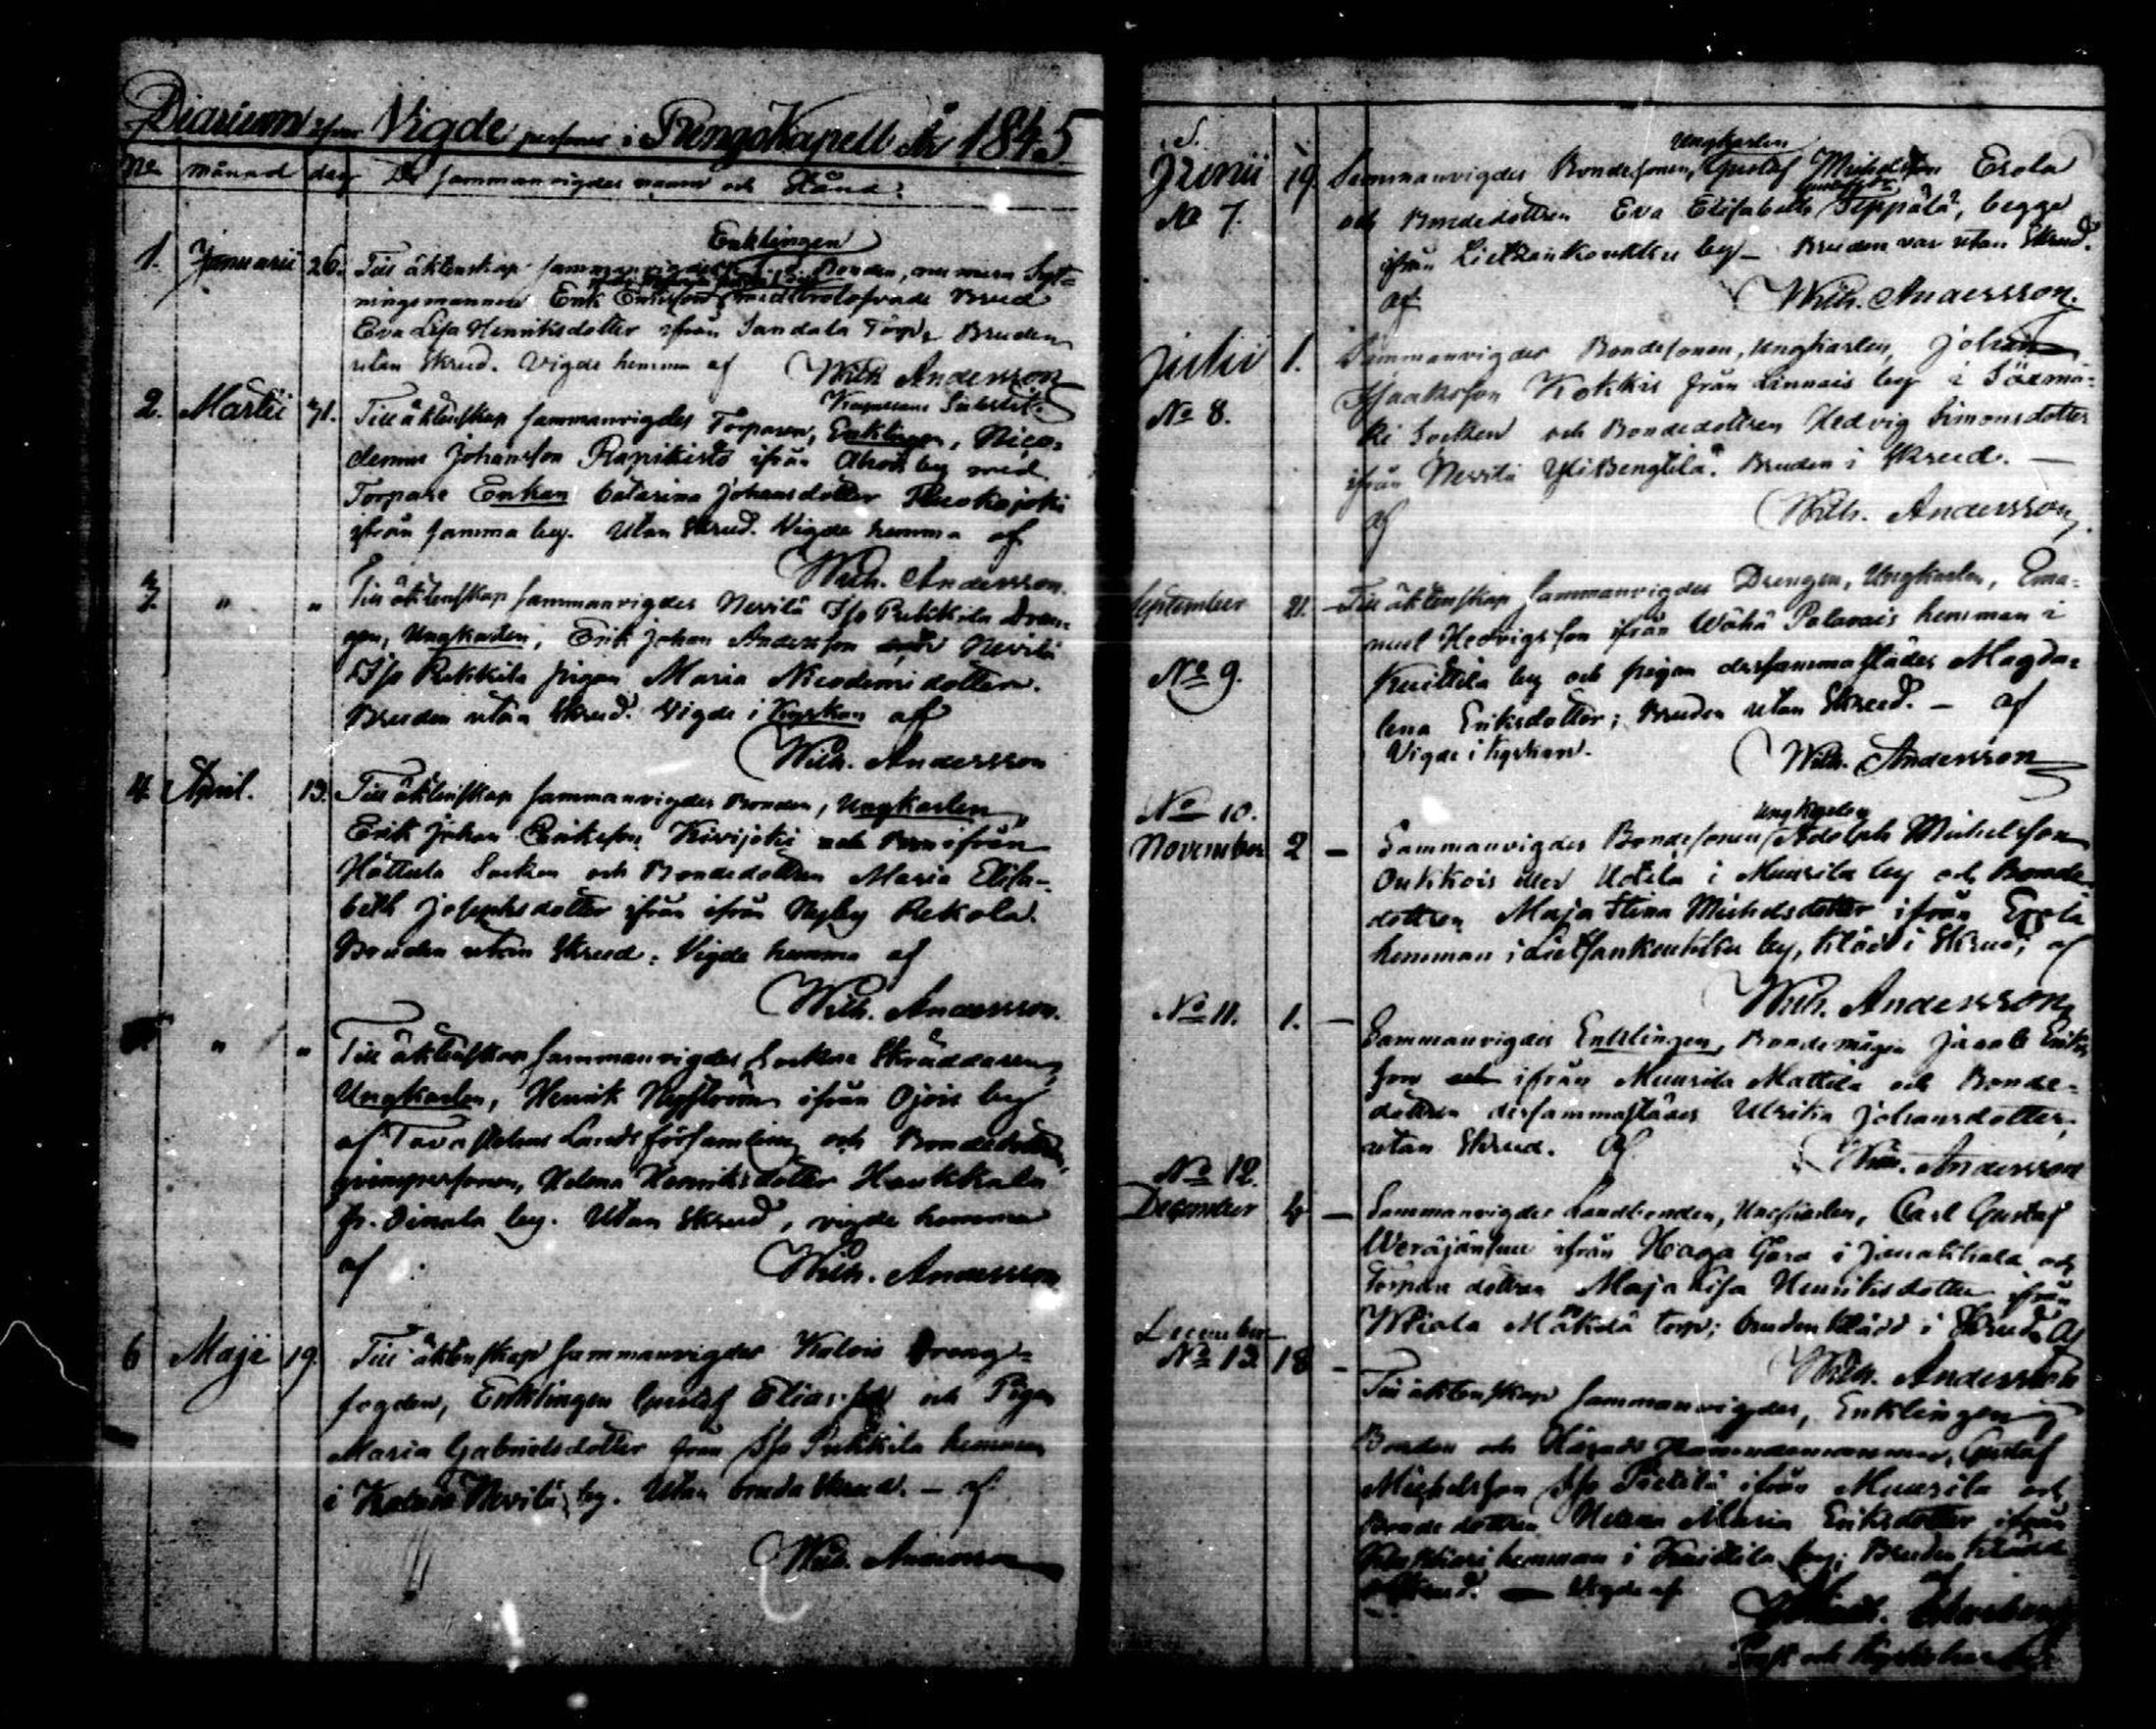 Diarium öfver Vigde personer i Rengo Kapell År 1845
No månad dag De sammanvigdes namn och Stånd.
Enklingen
1. Januarii 26. Till äktenskap sammanvigdes Bonden, numera Syt-
ningsmannen Erik Eriksson med trolofvade Brud
Eva Lisa Henriksdotter ifrån Sandala Torp, Bruden
utan Skrud. Vigde hemma af Wilh. Andersson
Kapellans Substit.
2. Martii 31. Till äktenskap sammanvigdes Torparen, Enklingen, Nico-
demus Johansson Rapikisto ifrån Ahois by med
Torpare Enkan Catarina Johansdotter
ifrån samma by. Utan Skrud. Vigde hemma af
Wilh. Andersson.
3. " " Till äktenskap sammanvigdes Nevilä Pukkila Dren-
gen, Ungkarlen, Erik Johan Andersson Nevilä
Pukkila pigan Maria Nicodemi dotter.
Bruden utan Skrud. Vigde i Kyrkan af
Wilh. Andersson
4. April. 13. Till äktenskap sammanvigdes Bonden, Ungkarlen
Erik Johan Eriksson Kivijoki ifrån
Hattula Socken och Bondedottren Maria Elisa-
beth Josephsdotter ifrån ifrån Nyby Pekola.
Bruden utan Skrud. Vigde hemma af
Wilh. Andersson.
" " Till äktenskap sammanvigdes Socken Skräddaren,
Ungkarlen, Henrik Nyström ifrån Ojois by
af Tavastehus Lands församling och Bondedottren,
qvinspersonen, Helena Henriksdotter Haukkala
fr. by. Utan Skrud, vigde hemma
af Wilh. Andersson
6 Maji 19. Till äktenskap sammanvigdes Kalois Dreng-
fogden, Enklingen Gustaf Eliasson och Pigan
Maria Gabrielsdotter från Pukkila hemman
i Nevilä by. Utan bruda skrud. – af
Wilh. Andersson
Ungkarlen
Junii 19. Sammanvigdes Bondesonen, Gustaf Michelsson Erola
No 7. och Bondedottren Eva Elisabeth Seppälä, begge
ifrån Lietsankoukku by – Bruden var utan Skrud.
af Wilh. Andersson.
Julii 1. Sammanvigdes Bondesonen, Ungkarlen, Johan
Isaaksson Kokkis från Linnais by i Säxmä-
No 8. ki Socken och Bondedottren Hedvig Simonsdotter
ifrån Nevilä YliBengtilä. Bruden i Skrud. –
af Wilh. Andersson.
September 21. – Till äktenskap sammanvigdes Drengen, Ungkarlen, Ema-
nuel Hedvigsson ifrån Wähä Palavais hemman i
No 9. Kuittila by och pigan dersammastädes Magda-
lena Eriksdotter; Bruden utan Skrud. – af
Vigde i kyrkan. Wilh. Andersson
No 10. Ungkarlen
November 2 – Sammanvigdes Bondesonen Adolph Michelsson
Oukkois eller Uotila i Muurila by och Bonde-
dottren Maja Stina Michelsdotter ifrån Erola
hemman i Lietsankoukku by, klädd i Skrud; af
Wilh. Andersson
No 11. 1. – Sammanvigdes Enklingen, Bondemågen Jacob Eriks-
son ifrån Muurila Mattila och Bonde-
dottren dersammastädes Ulrika Johansdotter,
utan Skrud. Af Wilh. Andersson
No 12.
December 4 – Sammanvigdes Landbonden, Ungkarlen, Carl Gustaf
ifrån Haga Gård i Janakkala och
Torpare dottren Maja Lisa Henriksdotter ifrån
torp; bruden klädd i Skrud. Af
Wilh. Andersson
December
No 13. 18 – Till äktenskap sammanvigdes, Enklingen
Bonden och Härads Nämndemannen, Gustaf
Michelsson ifrån Muurila och
Bonde dottren Helena Maria Eriksdotter ifrån
hemman i Kuittila by; Bruden klädd
i Skrud. — Vigde af